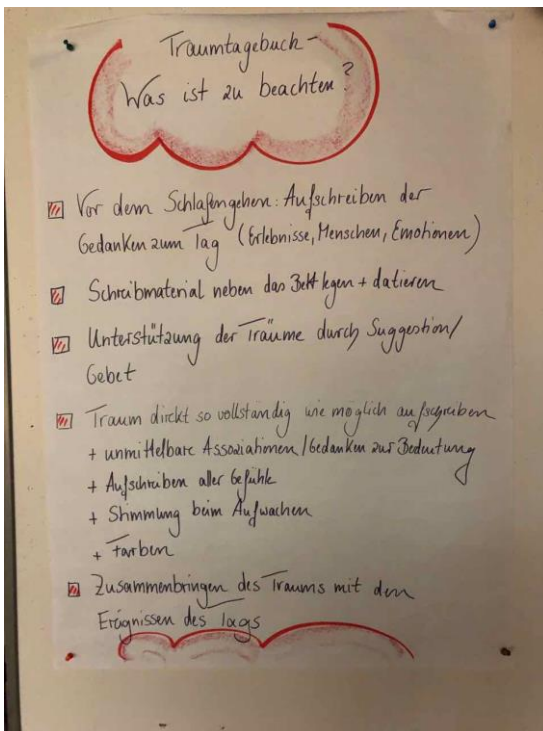 Traumtagebuch -
Was ist zu beachten?
Vor dem Schlafengehen: Aufschreiben der
Gedanken zum Tag (Erlebnisse, Menschen, Emotionen)
Schreibmaterial neben das Bett legen + datieren
Unterstützung der Träume durch Suggestion/
Gebet
Traum direkt so vollständig wie möglich aufschreiben
+ unmittelbare Assoziationen/Gedanken zur Bedeutung
+ Aufschreiben aller Gefühle
+ Stimmung beim Aufwachen
+ Farben
Zusammenbringen des Traums mit den
Ereignissen des Tags